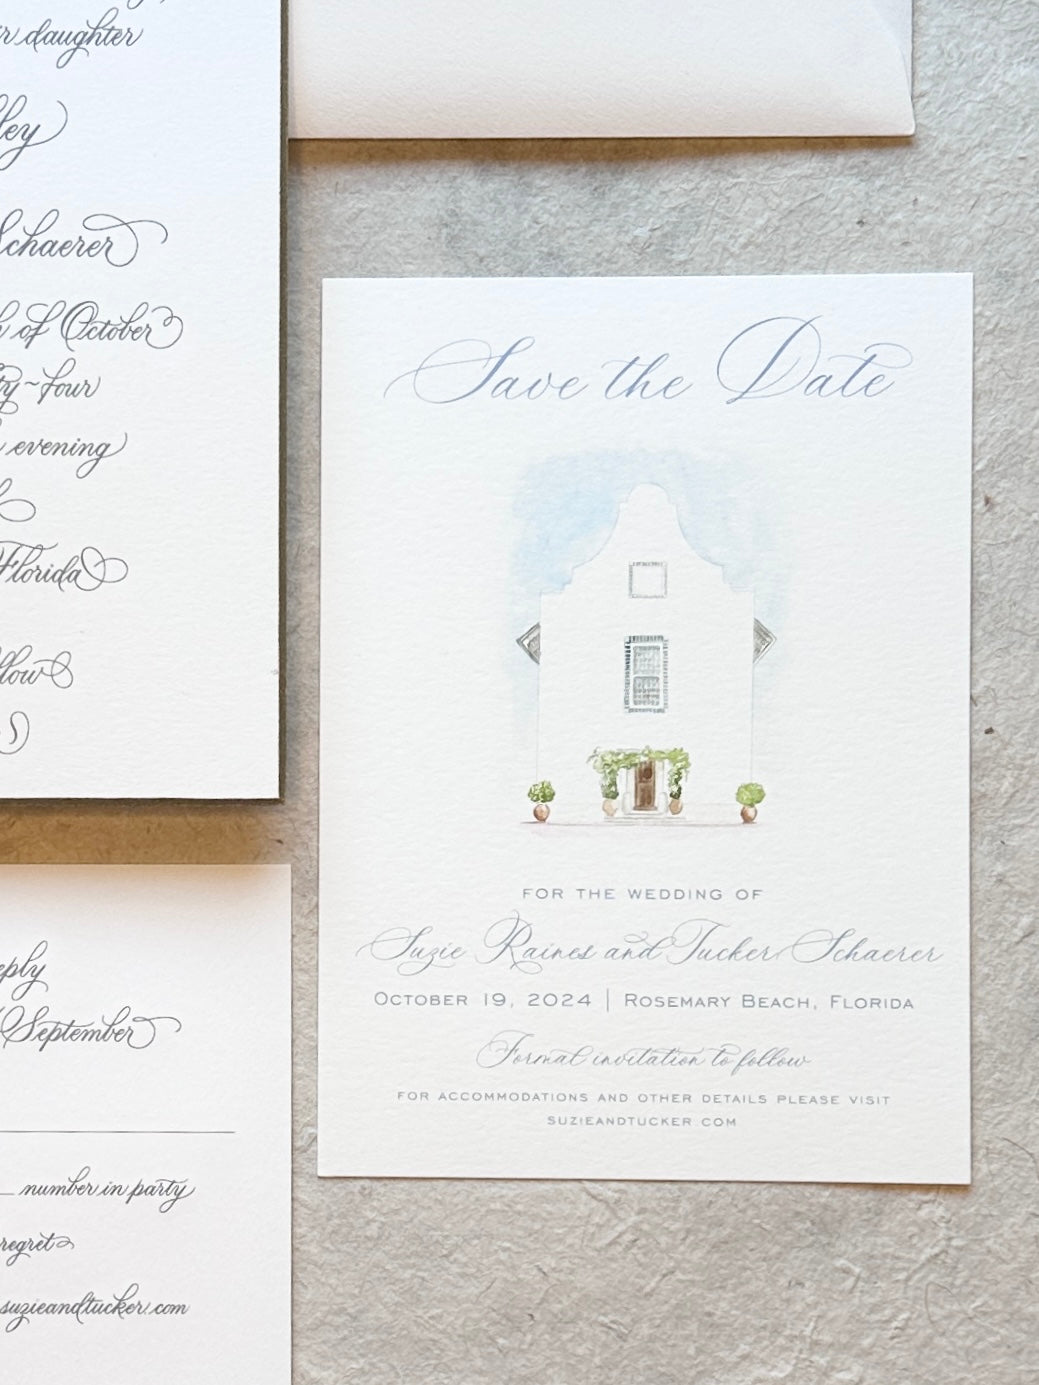 daughter
Schaerer
of October
~four
evening
Florida
reply
September
number in party
regret
suzieandtucker.com
Save the Date
FOR THE WEDDING OF
Suzie Raines and Tucker Schaerer
OCTOBER 19, 2024 | ROSEMARY BEACH, FLORIDA
Formal invitation to follow
FOR ACCOMMODATIONS AND OTHER DETAILS PLEASE VISIT
SUZIEANDTUCKER.COM